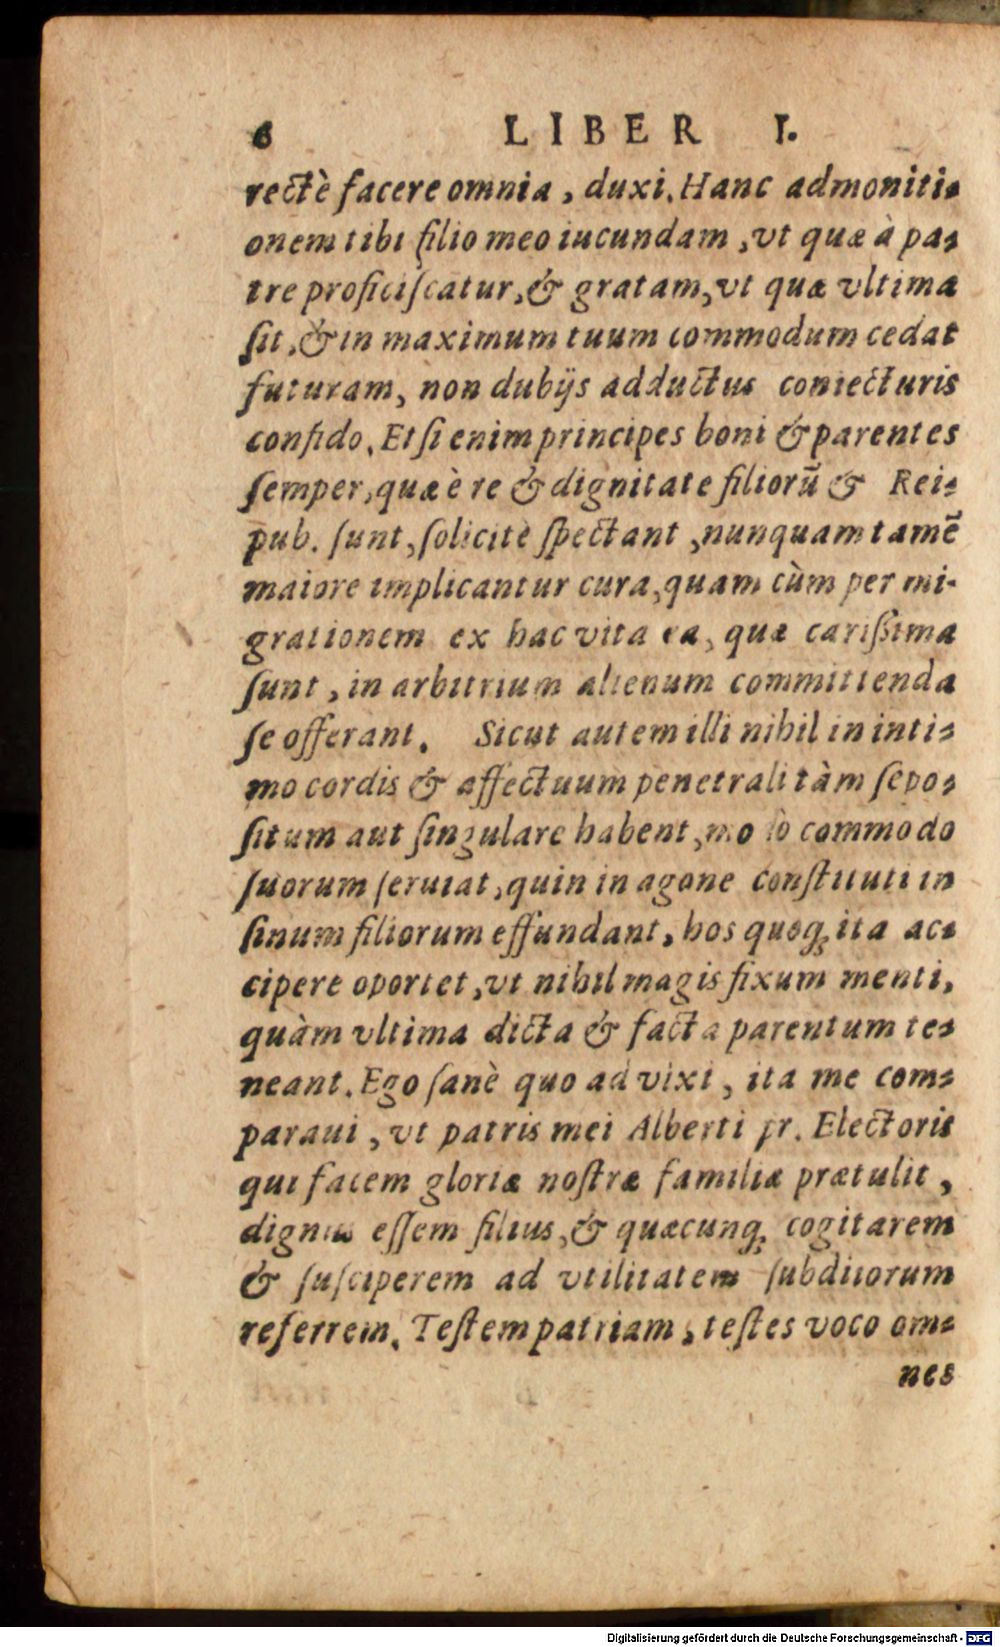 6 LIBER I.
rectè facere omnia, duxi. Hanc admoniti-
onem tibi filio meo iucundam, vt quæ à pa-
tre proficiſcatur, & gratam, vt quæ vltima
ſit, & in maximum tuum commodum cedat
futuram, non dubijs adductus coniecturis
confido. Etſi enim principes boni & parentes
ſemper, quæ è re & dignitate filiorū & Rei-
pub. ſunt, ſolicitè ſpectant, nunquam tamē
maiore implicantur cura, quam cùm per mi-
grationem ex hac vita ea, quæ cariſſima
ſunt, in arbitrium alienum committenda
ſe offerant. Sicut autem illi nihil in inti-
mo cordis & affectuum penetrali tàm ſepo-
ſitum aut ſingulare habent, mo lò commodo
ſuorum ſeruiat, quin in agone conſtituti in
ſinum filiorum effundant, hos quoq; ita ac-
cipere oportet, vt nihil magis fixum menti,
quàm vltima dicta & facta parentum te-
neant. Ego ſanè quo ad vixi, ita me com-
paraui, vt patris mei Alberti pr. Electoris
qui facem gloriæ noſtræ familiæ prætulit,
dignus eſſem filius, & quæcunq; cogitarem
& ſuſciperem ad vtilitatem ſubditorum
referrem. Teſtem patriam, teſtes voco om-
nes
Digitalisierung gefördert durch die Deutsche Forschungsgemeinschaft - DFG